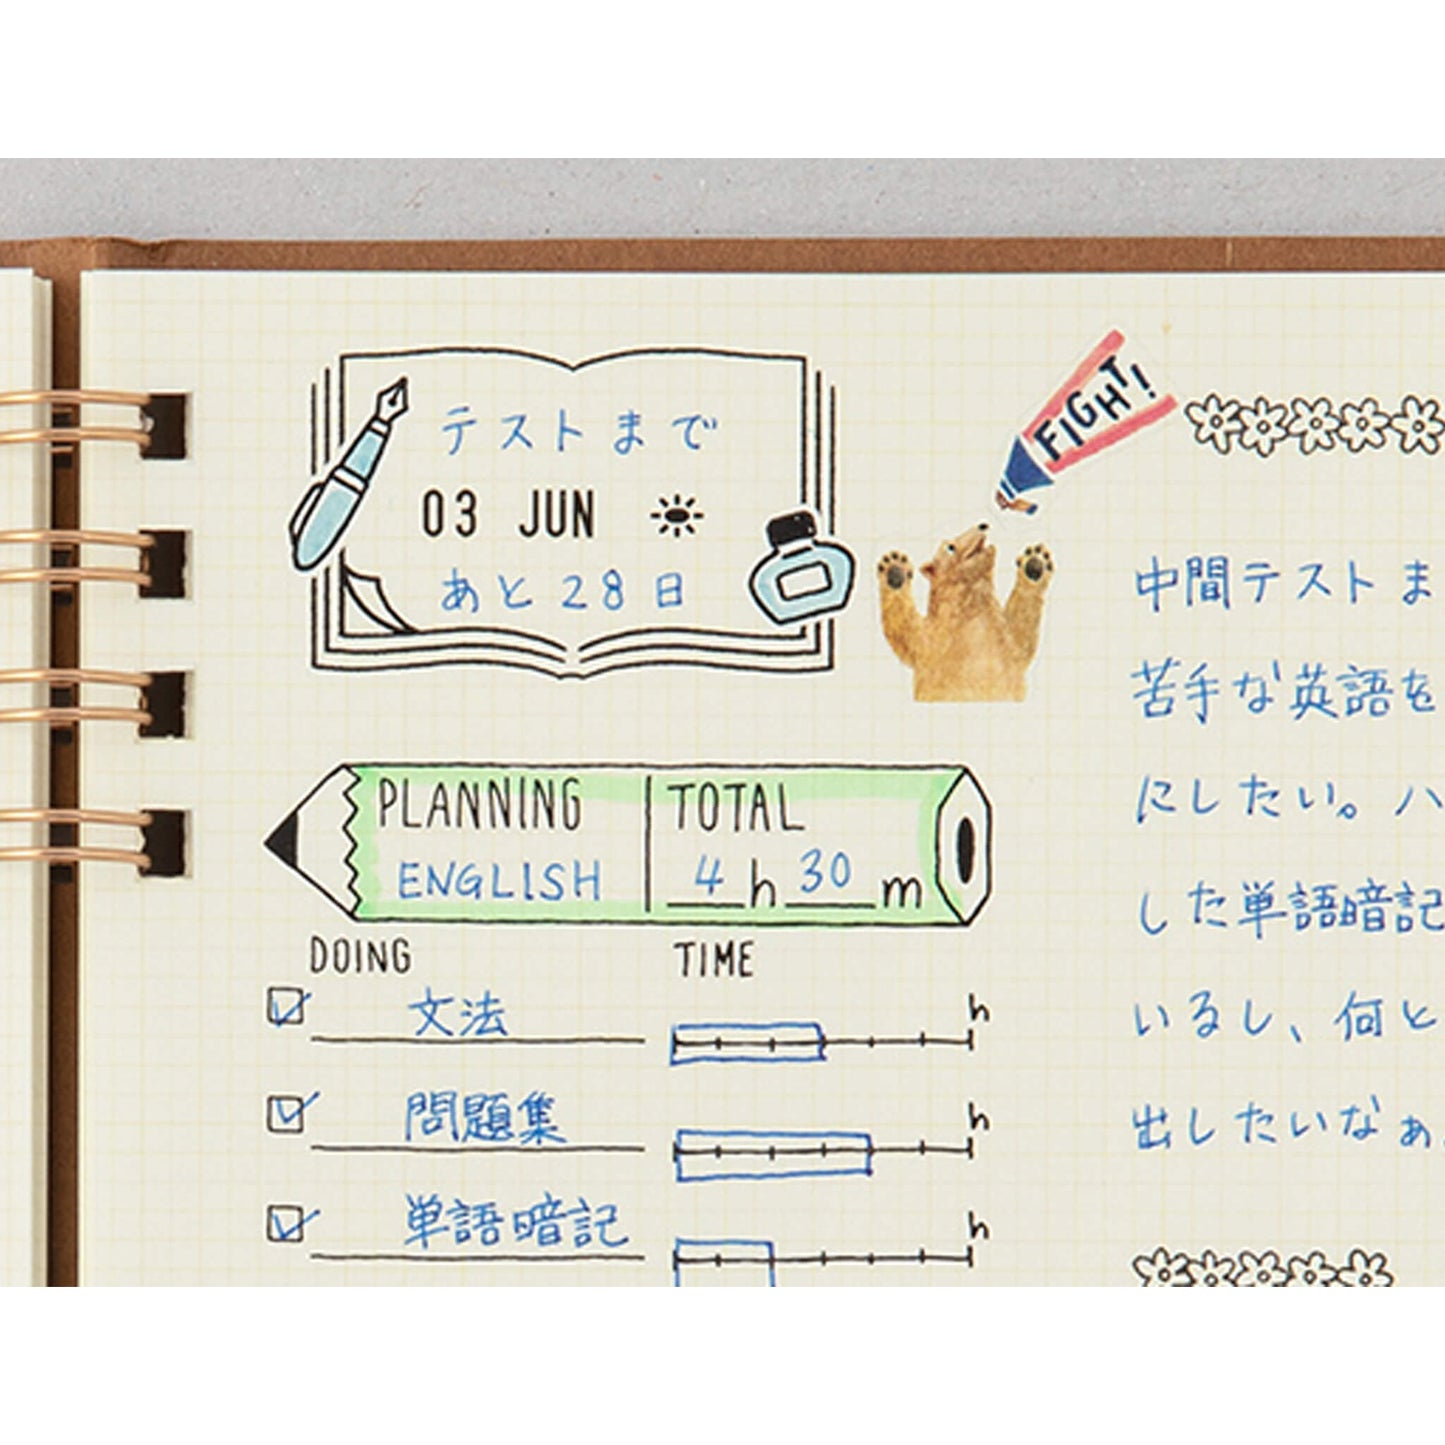 テストまで
03 JUN
あと28日
FIGHT!
PLANNING
ENGLISH
TOTAL
4h30m
DOING
TIME
文法
h
問題集
h
単語暗記
h
中間テストま
苦手な英語を
にしたい。ハ
した単語暗記
いるし、何と
出したいなぁ